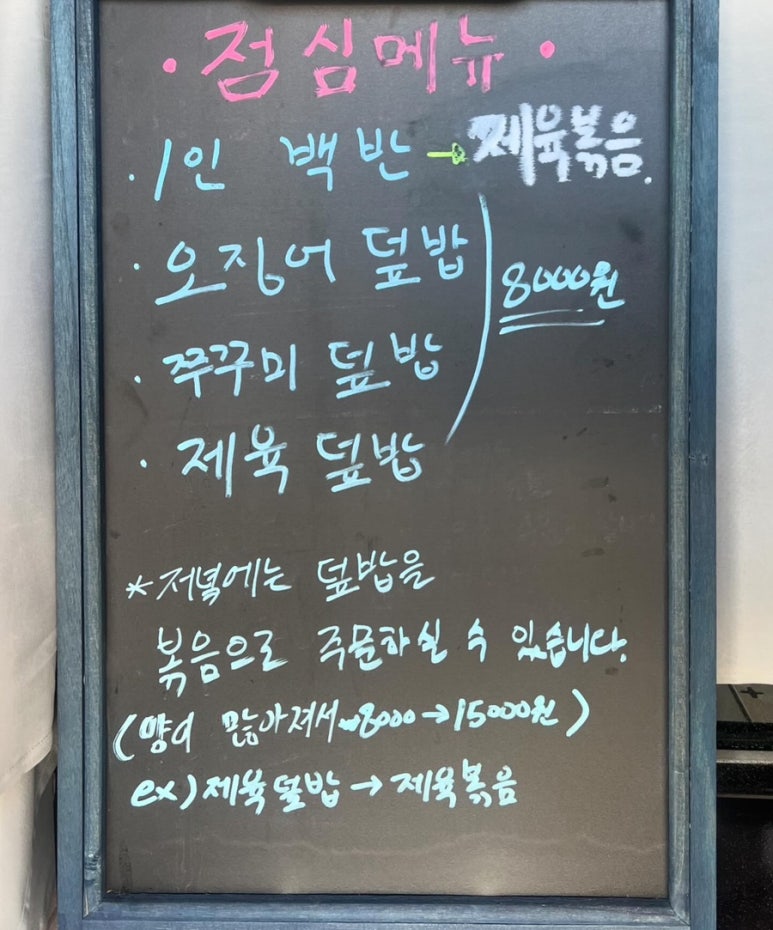 · 점심메뉴 ·
· 1인 백반 → 제육볶음.
· 오징어 덮밥
8000원
· 쭈꾸미 덮밥
· 제육 덮밥
* 저녁에는 덮밥을
볶음으로 주문하실 수 있습니다.
(양이 많아져서 8000→15000원)
ex) 제육덮밥 → 제육볶음